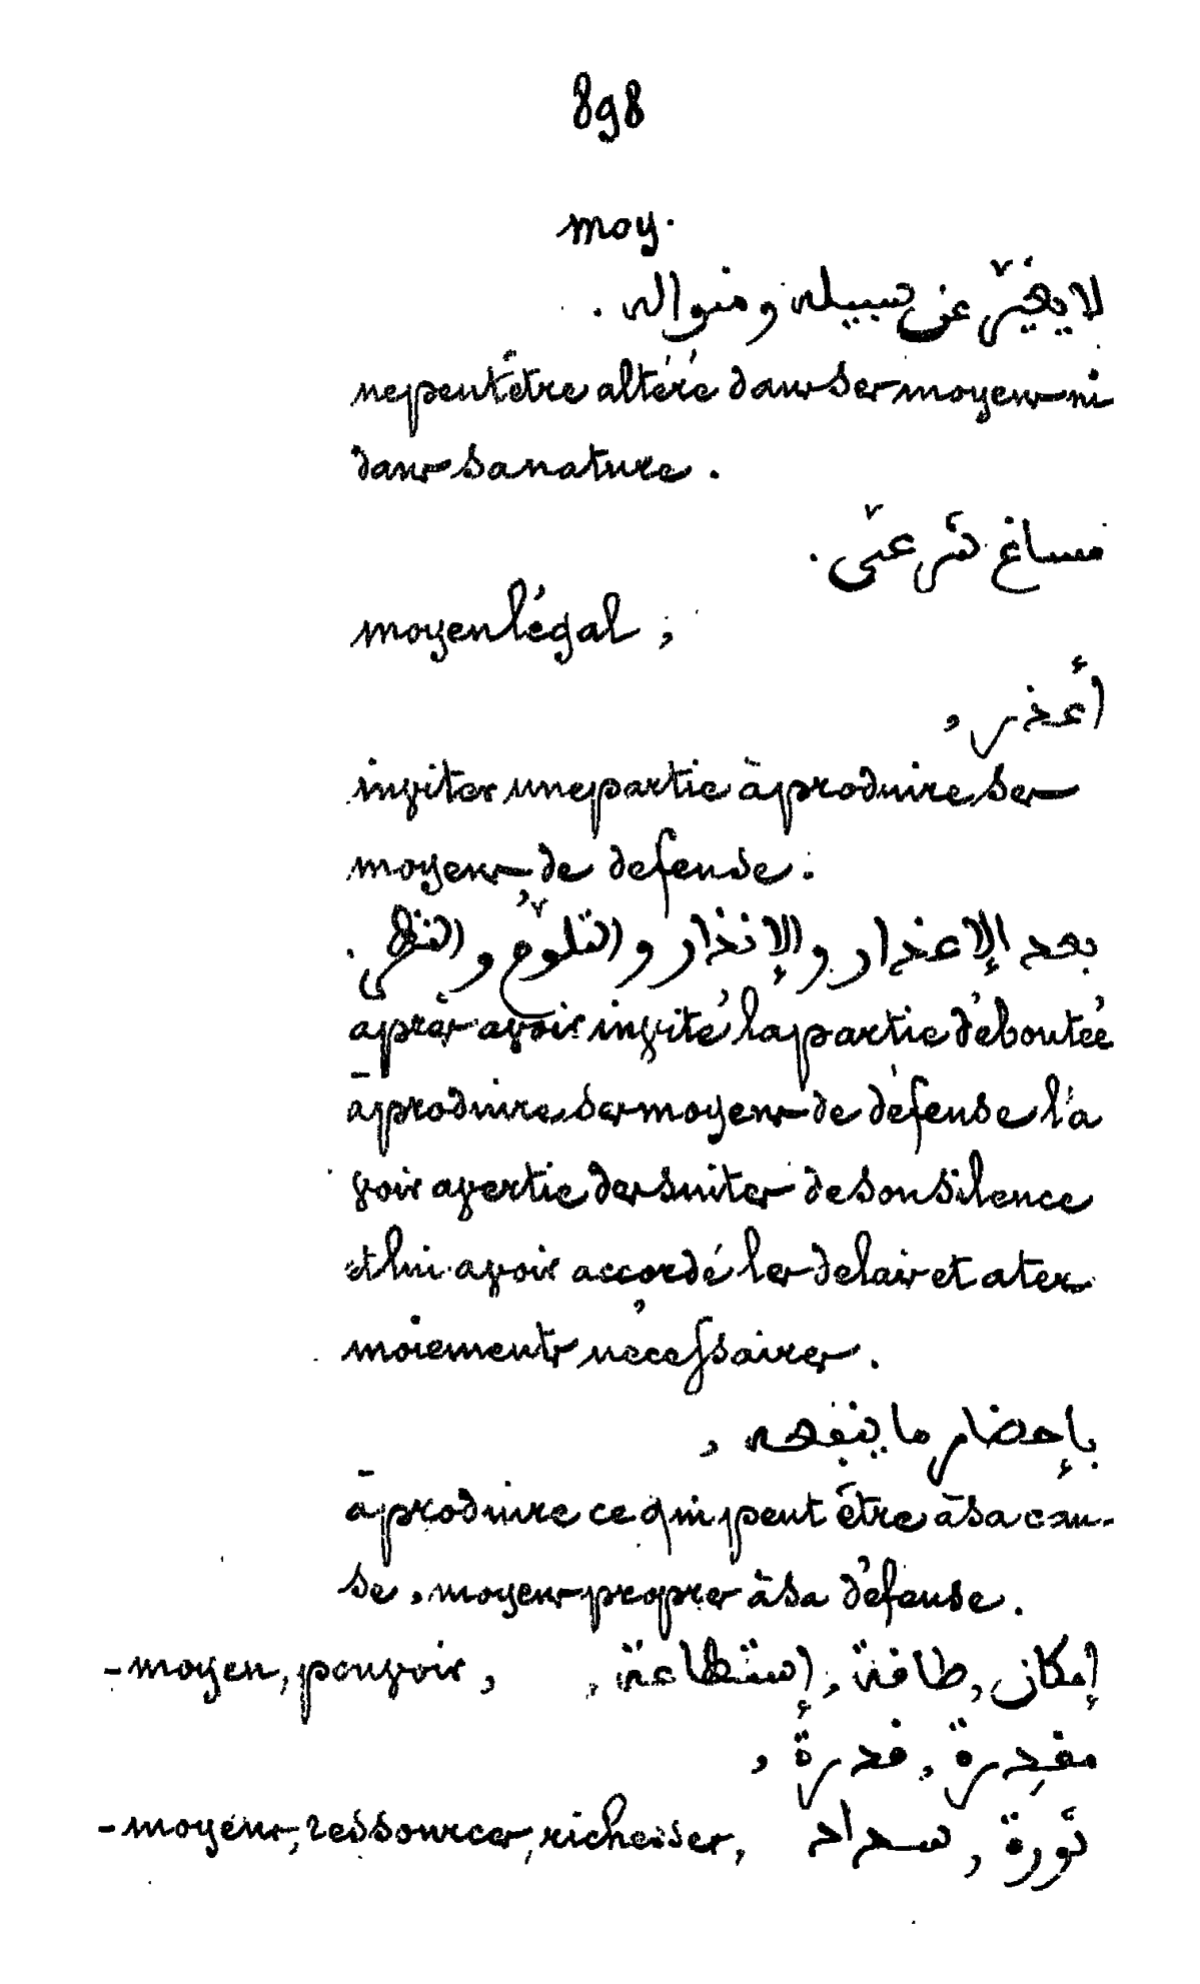 898
moy.
لا يغيّر عن سبيله ومنواله .
ne peut être altéré dans ses moyens ni
dans sa nature .
مساغ شرعيّ .
moyen légal ,
أعذر ,
inviter une partie à produire ses
moyens de defense .
بعد الإعذار والإنذار والتلوّم و .
après avoir invité la partie déboutée
à produire ses moyens de défense l'a
voir avertie des suites de son silence
et lui avoir accordé les delais et ater
moiements nécessaires .
بإحضار ما ينفعه ,
à produire ce qui peut être à sa cau-
se , moyens propres à sa défense .
- moyen, pouvoir , إمكان , طاقة , إستطاعة ,
مقدرة , قدرة ,
- moyens, ressources, richesses, ثورة , سداد